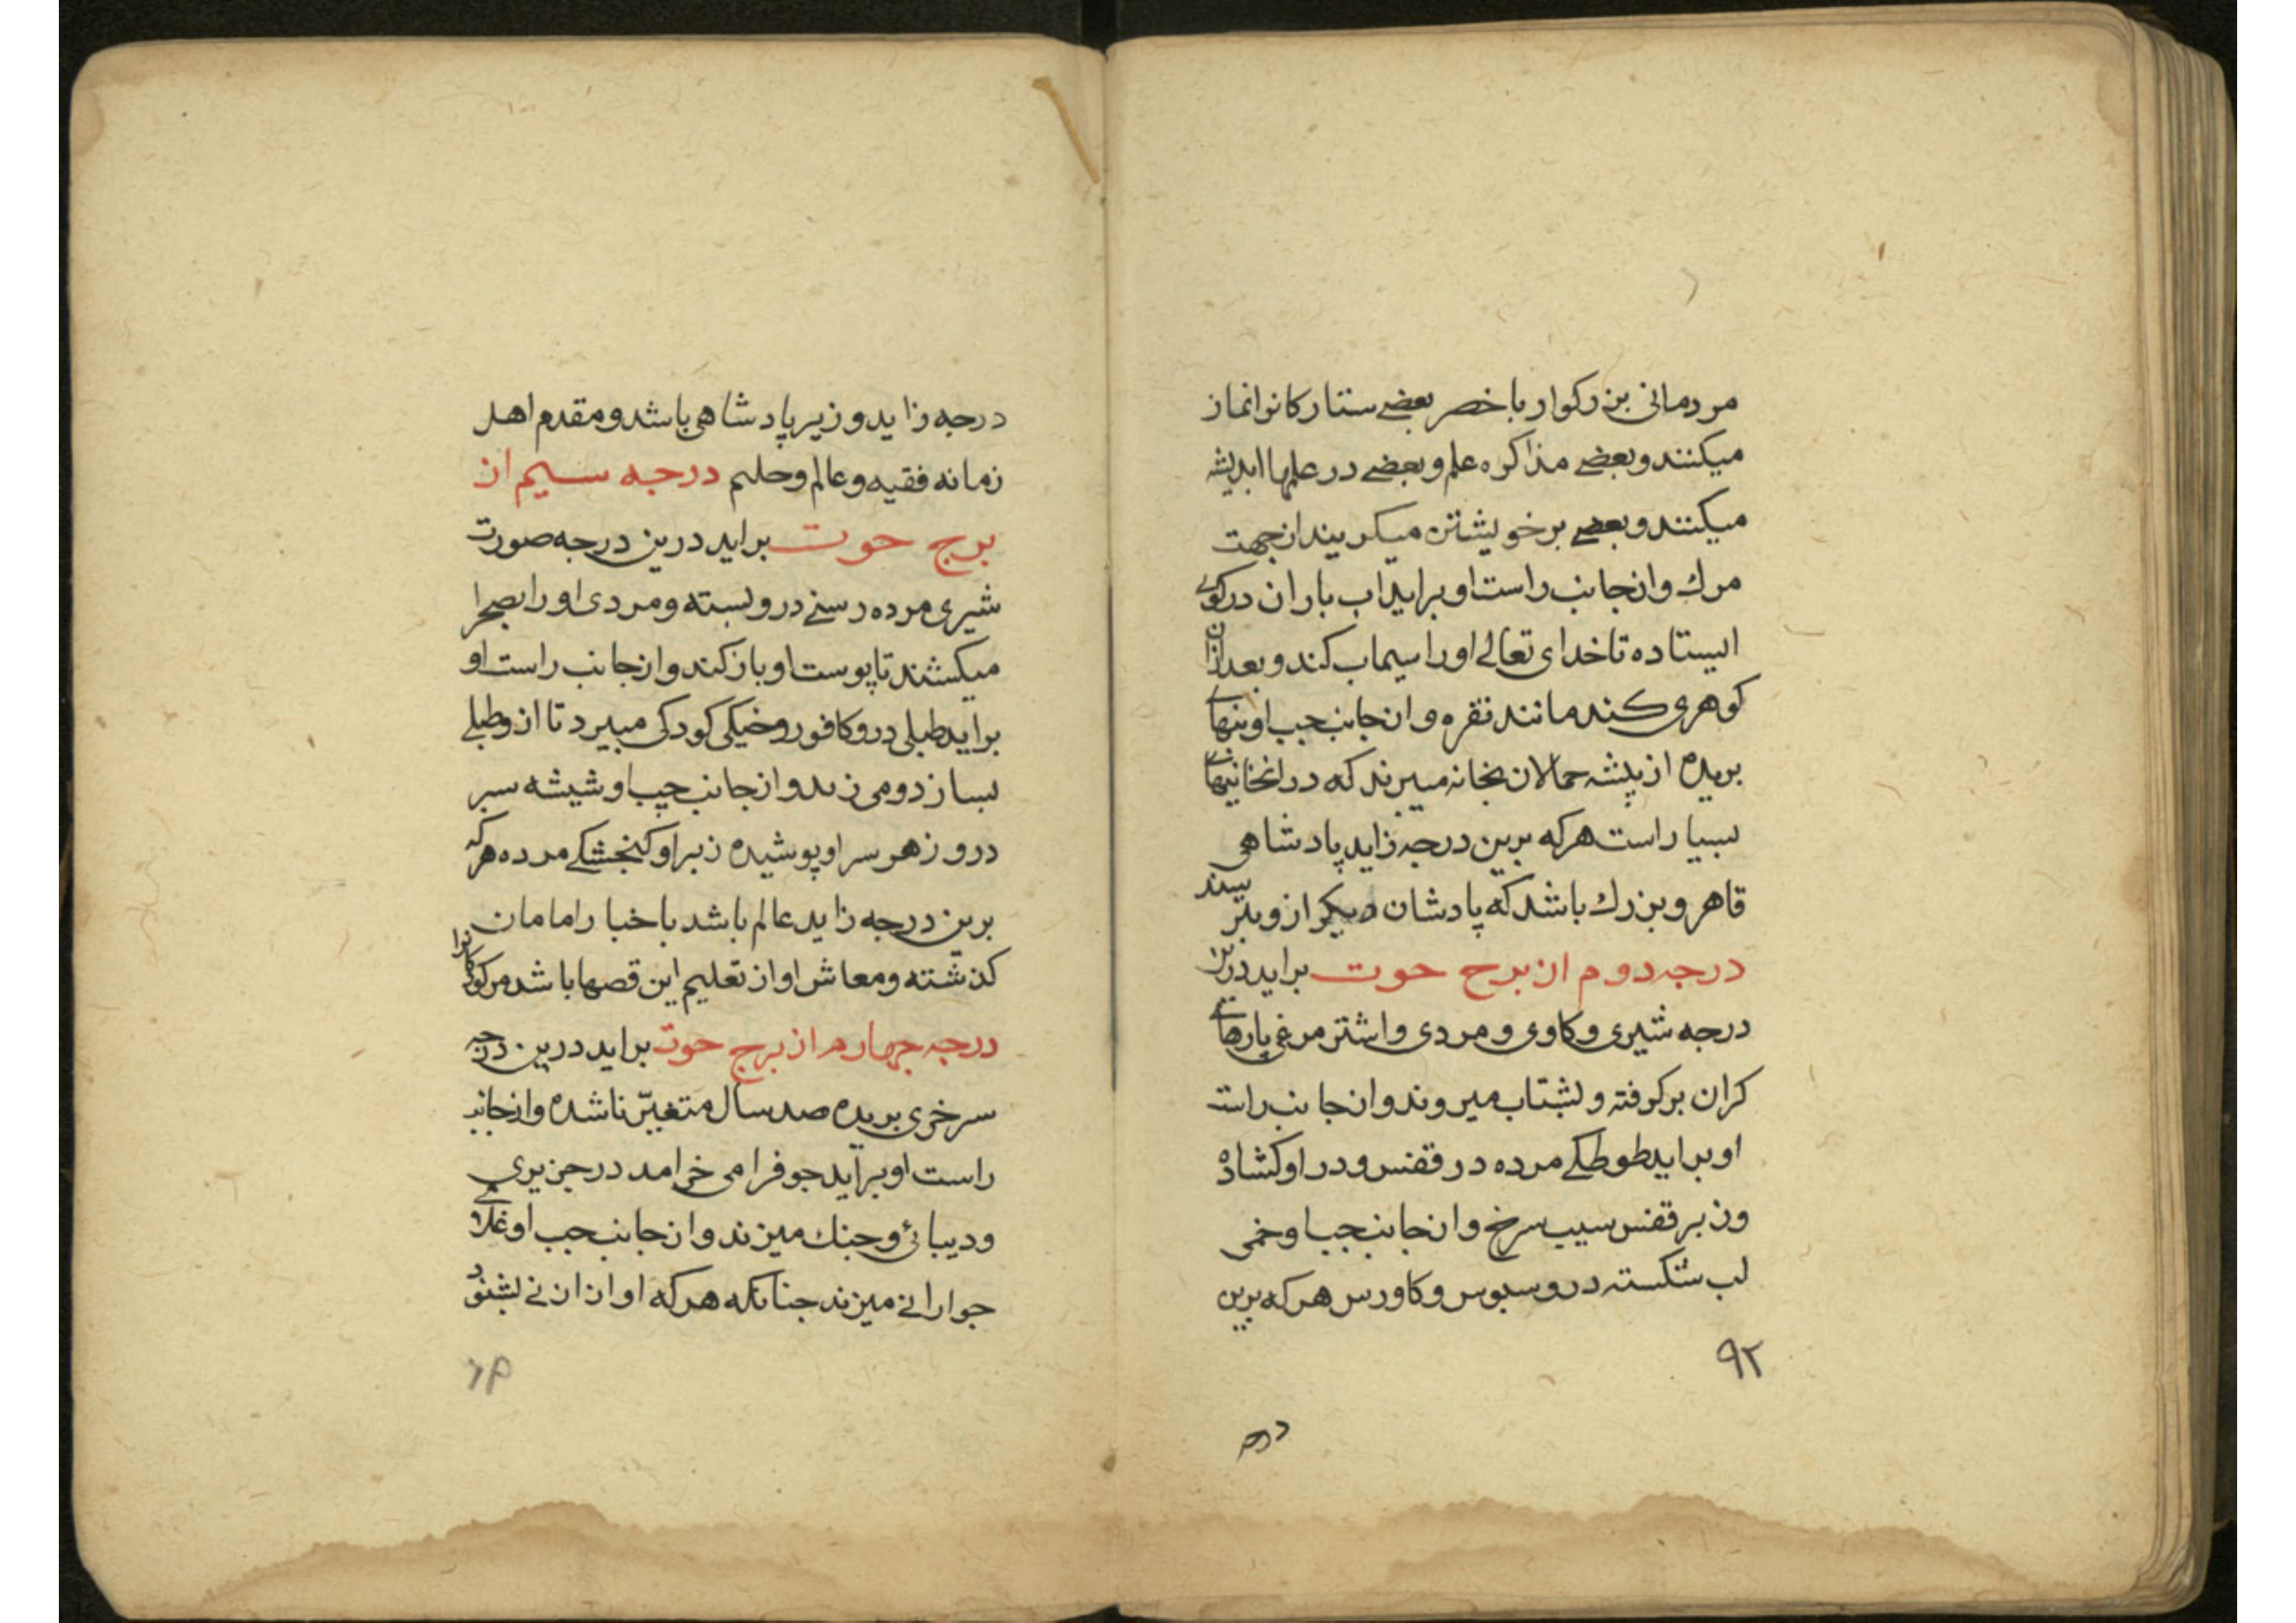 مردمانی بزرکوار با خصر بعضے ستارکانرا نماز
میکنند و بعضے مذاکره علم و بعضے در علمها اندیشه
میکنند و بعضے بر خویشتن میکریند از جهت
مرك و از جانب راست او براید اب باران در کوے
ایستاده تا خدای تعالے اورا سیماب کند و بعد ازان
کوهری کند مانند نقره و از جانب جب او بنهاے
بریده از پیشه حمالان بخانه میبرند که در انخانه بنهاے
بسیار است هر که برین درجه زاید پادشاهی
قاهر و بزرك باشد که پادشان دیکر ازو بترسند
درجه دوم از برج حوت براید درین
درجه شیری و کاوی و مردی و اشترمرغی بارهاے
کران برکرفته و بشتاب میروند و از جانب راست
او براید طوطکے مرده در قفس و در او کشاده
و زبر قفس سیب سرخ و از جانب جب او خمی
لب شکسته درو سبوس و کاورس هر که برین
۹۲
درجه
درجه زاید وزیر پادشاهی باشد و مقدم اهل
زمانه فقیه و عالم و حلیم درجه سیم از
برج حوت براید درین درجه صورت
شیری مرده رسنے درو بسته و مردی اورا بصحرا
میکشند تا پوست او باز کند و از جانب راست او
براید طبلی درو کافور و خیکی کودکی میبرد تا ازو طبلے
بسازد و می زند و از جانب چپ او شیشه سبز
درو زهر سر او پوشیده زبر او کنجشکے مرده هر که
برین درجه زاید عالم باشد باخبار امامان
کذشته و معاش او از تعلیم این قصها باشد مر کودکانرا
درجه جهارم از برج حوت براید درین درجه
سر خری بریده صد سال متغیّر ناشده و از جانب
راست او براید جو فرا می خرامد در جزیری
و دیبائی و جنك میزند و از جانب جب او غلامے
جوارانے میزند جنانکه هر که اواز ان نے بشنود